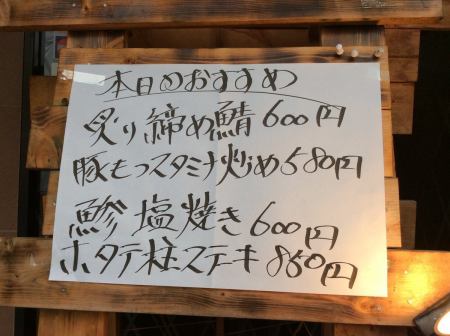 本日のおすすめ
炙り締め鯖600円
豚もつスタミナ炒め580円
鯵塩焼き600円
ホタテ柱ステキ850円